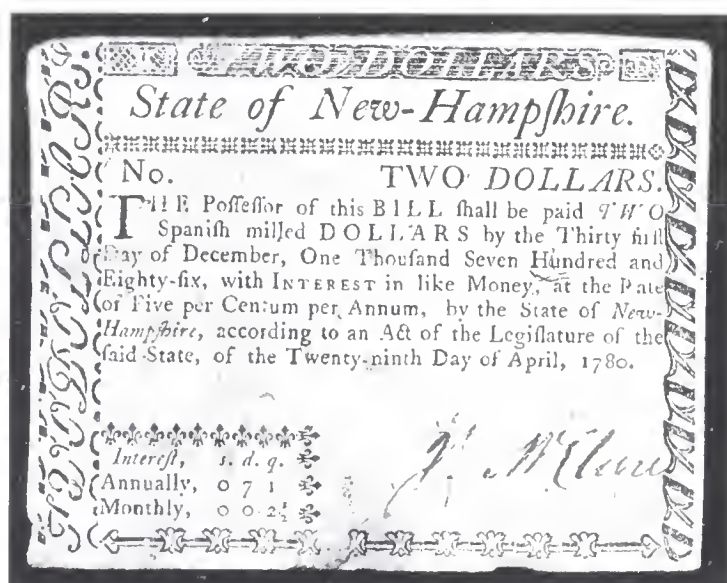 TWO DOLLARS
State of New-Hampſhire.
No. TWO DOLLARS.
THE Poſſeſſor of this BILL ſhall be paid TWO
Spaniſh milled DOLLARS by the Thirty firſt
Day of December, One Thouſand Seven Hundred and
Eighty-ſix, with INTEREST in like Money, at the Rate
of Five per Centum per Annum, by the State of New-
Hampſhire, according to an Act of the Legiſlature of the
ſaid State, of the Twenty-ninth Day of April, 1780.
Intereſt, s. d. q.
Annually, 0 7 1
Monthly, 0 0 2½
TWO DOLLARS